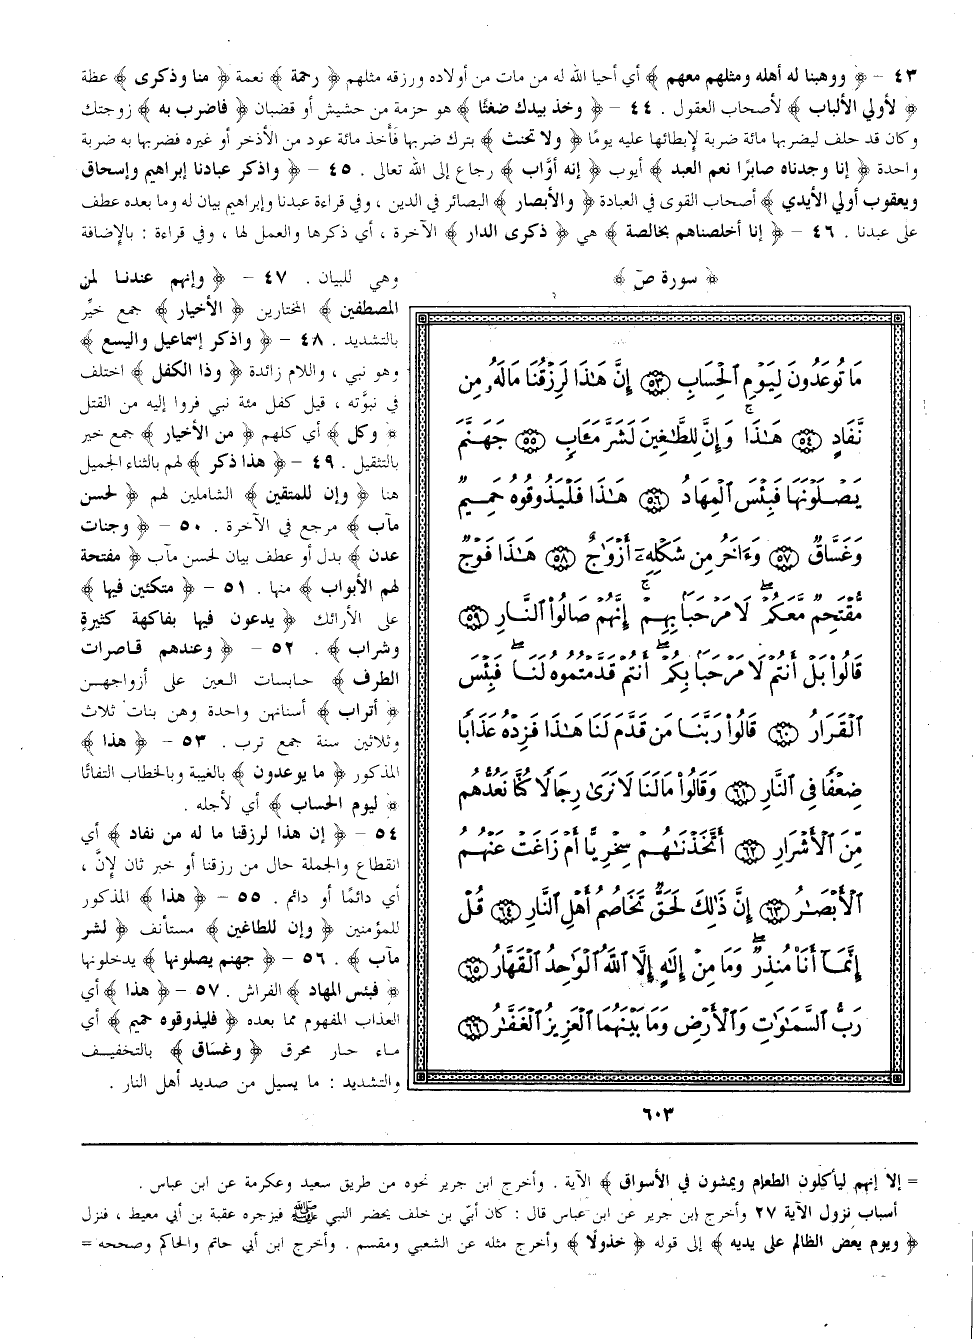 ٤٣ – ﴿ ووهبنا له أهله ومثلهم معهم ﴾ أي أحيا الله له من مات من أولاده ورزقه مثلهم ﴿ رحمة ﴾ نعمة ﴿ منا وذكرى ﴾ عظة
﴿ لأولي الألباب ﴾ لأصحاب العقول . ٤٤ – ﴿ وخذ بيدك ضغثًا ﴾ هو حزمة من حشيش أو قضبان ﴿ فاضرب به ﴾ زوجتك
وكان قد حلف ليضربها مائة ضربة لإبطائها عليه يومًا ﴿ ولا تحنث ﴾ بترك ضربها فأخذ مائة عود من الأذخر أو غيره فضربها به ضربة
واحدة ﴿ إنا وجدناه صابرًا نعم العبد ﴾ أيوب ﴿ إنه أوَّاب ﴾ رجاع إلى الله تعالى . ٤٥ – ﴿ واذكر عبادنا إبراهيم وإسحاق
ويعقوب أولي الأيدي ﴾ أصحاب القوى في العبادة ﴿ والأبصار ﴾ البصائر في الدين ، وفي قراءة عبدنا وإبراهيم بيان له وما بعده عطف
على عبدنا . ٤٦ – ﴿ إنا أخلصناهم بخالصة ﴾ هي ﴿ ذكرى الدار ﴾ الآخرة ، أي ذكرها والعمل لها ، وفي قراءة : بالإضافة
وهي للبيان . ٤٧ – ﴿ وإنهم عندنا لمن
المصطفين ﴾ المختارين ﴿ الأخيار ﴾ جمع خيِّر
بالتشديد . ٤٨ – ﴿ واذكر إسماعيل واليسع ﴾
وهو نبي ، واللام زائدة ﴿ وذا الكفل ﴾ اختلف
في نبوَّته ، قيل كفل مئة نبي فروا إليه من القتل
﴿ وكل ﴾ أي كلهم ﴿ من الأخيار ﴾ جمع خير
بالتثقيل . ٤٩ – ﴿ هذا ذكر ﴾ لهم بالثناء الجميل
هنا ﴿ وإن للمتقين ﴾ الشاملين لهم ﴿ لحسن
مآب ﴾ مرجع في الآخرة . ٥٠ – ﴿ وجنات
عدن ﴾ بدل أو عطف بيان لحسن مآب ﴿ مفتحة
لهم الأبواب ﴾ منها . ٥١ – ﴿ متكئين فيها ﴾
على الأرائك ﴿ يدعون فيها بفاكهة كثيرةٍ
وشراب ﴾ . ٥٢ – ﴿ وعندهم قاصرات
الطرف ﴾ حابسات العين على أزواجهن
﴿ أتراب ﴾ أسنانهن واحدة وهن بنات ثلاث
وثلاثين سنة جمع ترب . ٥٣ – ﴿ هذا ﴾
المذكور ﴿ ما يوعدون ﴾ بالغيبة وبالخطاب التفاتًا
﴿ ليوم الحساب ﴾ أي لأجله .
٥٤ – ﴿ إن هذا لرزقنا ما له من نفاد ﴾ أي
انقطاع والجملة حال من رزقنا أو خبر ثان لإنَّ ،
أي دائمًا أو دائم . ٥٥ – ﴿ هذا ﴾ المذكور
للمؤمنين ﴿ وإن للطاغين ﴾ مستأنف ﴿ لشر
مآب ﴾ . ٥٦ – ﴿ جهنم يصلونها ﴾ يدخلونها
﴿ فبئس المهاد ﴾ الفراش . ٥٧ – ﴿ هذا ﴾ أي
العذاب المفهوم مما بعده ﴿ فليذوقوه حميم ﴾ أي
ماء حار محرق ﴿ وغساق ﴾ بالتخفيف
والتشديد : ما يسيل من صديد أهل النار .
﴿ سورة صٓ ﴾
مَا تُوعَدُونَ لِيَوْمِ ٱلْحِسَابِ ٥٣ إِنَّ هَٰذَا لَرِزْقُنَا مَا لَهُۥ مِن
نَّفَادٍ ٥٤ هَٰذَا ۚ وَإِنَّ لِلطَّٰغِينَ لَشَرَّ مَـَٔابٍ ٥٥ جَهَنَّمَ
يَصْلَوْنَهَا فَبِئْسَ ٱلْمِهَادُ ٥٦ هَٰذَا فَلْيَذُوقُوهُ حَمِيمٌ
وَغَسَّاقٌ ٥٧ وَءَاخَرُ مِن شَكْلِهِۦٓ أَزْوَٰجٌ ٥٨ هَٰذَا فَوْجٌ
مُّقْتَحِمٌ مَّعَكُمْ ۖ لَا مَرْحَبًۢا بِهِمْ ۚ إِنَّهُمْ صَالُوا۟ ٱلنَّارِ ٥٩
قَالُوا۟ بَلْ أَنتُمْ لَا مَرْحَبًۢا بِكُمْ ۖ أَنتُمْ قَدَّمْتُمُوهُ لَنَا ۖ فَبِئْسَ
ٱلْقَرَارُ ٦٠ قَالُوا۟ رَبَّنَا مَن قَدَّمَ لَنَا هَٰذَا فَزِدْهُ عَذَابًا
ضِعْفًا فِى ٱلنَّارِ ٦١ وَقَالُوا۟ مَا لَنَا لَا نَرَىٰ رِجَالًا كُنَّا نَعُدُّهُم
مِّنَ ٱلْأَشْرَارِ ٦٢ أَتَّخَذْنَٰهُمْ سِخْرِيًّا أَمْ زَاغَتْ عَنْهُمُ
ٱلْأَبْصَٰرُ ٦٣ إِنَّ ذَٰلِكَ لَحَقٌّ تَخَاصُمُ أَهْلِ ٱلنَّارِ ٦٤ قُلْ
إِنَّمَآ أَنَا۠ مُنذِرٌ ۖ وَمَا مِنْ إِلَٰهٍ إِلَّا ٱللَّهُ ٱلْوَٰحِدُ ٱلْقَهَّارُ ٦٥
رَبُّ ٱلسَّمَٰوَٰتِ وَٱلْأَرْضِ وَمَا بَيْنَهُمَا ٱلْعَزِيزُ ٱلْغَفَّٰرُ ٦٦
٦٠٣
= إلا إنهم ليأكلون الطعام ويمشون في الأسواق ﴾ الآية . وأخرج ابن جرير نحوه من طريق سعيد وعكرمة عن ابن عباس .
أسباب نزول الآية ٢٧ وأخرج ابن جرير عن ابن عباس قال : كان أبيّ بن خلف يحضر النبي ﷺ فيزجره عقبة بن أبي معيط ، فنزل
﴿ ويوم يعض الظالم على يديه ﴾ إلى قوله ﴿ خذولًا ﴾ وأخرج مثله عن الشعبي ومقسم . وأخرج ابن أبي حاتم والحاكم وصححه =